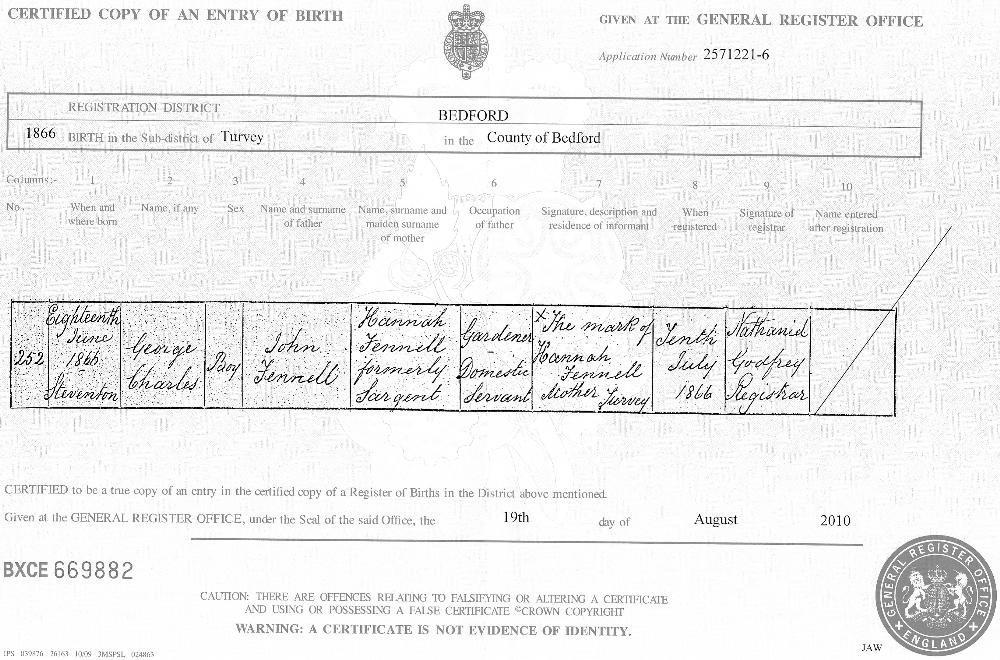 CERTIFIED COPY OF AN ENTRY OF BIRTH
GIVEN AT THE GENERAL REGISTER OFFICE
Application Number 2571221-6
REGISTRATION DISTRICT
BEDFORD
1866 BIRTH in the Sub-district of Turvey in the County of Bedford
Columns:- 1 2 3 4 5 6 7 8 9 10
No. When and where born Name, if any Sex Name and surname of father Name, surname and maiden surname of mother Occupation of father Signature, description and residence of informant When registered Signature of registrar Name entered after registration
252
Eighteenth
June
1866
Steventon
George
Charles
Boy
John
Fennell
Hannah
Fennell
formerly
Sargent
Gardener
Domestic
Servant
X The mark of
Hannah
Fennell
Mother Turvey
Tenth
July
1866
Nathaniel
Godfrey
Registrar
CERTIFIED to be a true copy of an entry in the certified copy of a Register of Births in the District above mentioned.
Given at the GENERAL REGISTER OFFICE, under the Seal of the said Office, the 19th day of August 2010
BXCE 669882
CAUTION: THERE ARE OFFENCES RELATING TO FALSIFYING OR ALTERING A CERTIFICATE
AND USING OR POSSESSING A FALSE CERTIFICATE ©CROWN COPYRIGHT
WARNING: A CERTIFICATE IS NOT EVIDENCE OF IDENTITY.
GENERAL REGISTER OFFICE
ENGLAND
JAW
IPS 039876 26163 10/09 3MSPSL 024863